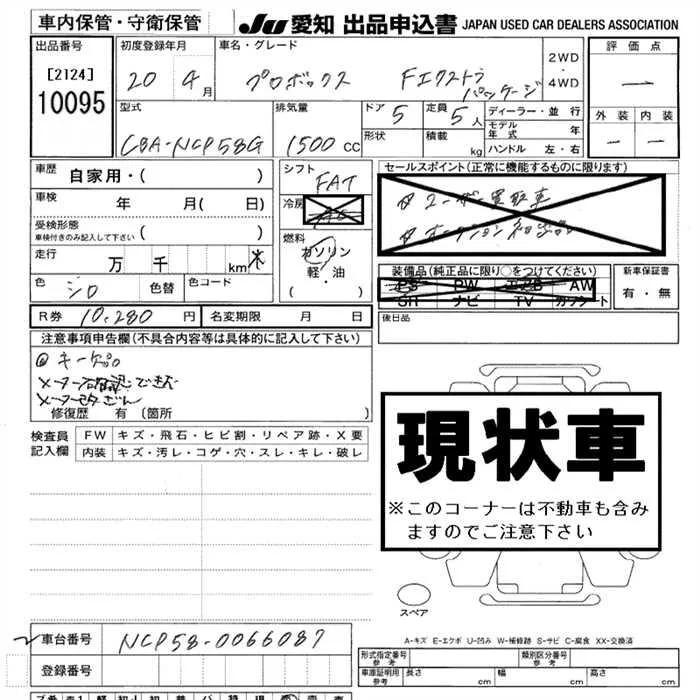 車内保管・守衛保管
JU 愛知 出品申込書 JAPAN USED CAR DEALERS ASSOCIATION
出品番号
[2124]
10095
初度登録年月
20 4月
車名・グレード
プロボックス Fエクストラパッケージ
2WD
・
4WD
評価点
—
外装 内装
— —
型式
CBA-NCP58G
排気量
1500cc
ドア 5
形状
定員 5人
積載 kg
ディーラー・並行
モデル年式 年
ハンドル 左・右
車歴
自家用・( )
車検
年 月( 日)
受検形態
車検付きのみ記入して下さい ( )
走行
万 千 km 不
色 シロ 色替 色コード
シフト
FAT
冷房
燃料
ガソリン
軽・油
( ・ )
セールスポイント(正常に機能するものに限ります)
装備品(純正品に限り○をつけてください)
PS PW エアB AW
SR ナビ TV カワシート
新車保証書
有・無
後日品
R券 10,280円 名変期限 月 日
注意事項申告欄(不具合内容等は具体的に記入して下さい)
メーター確認できず
修復歴 有 (箇所 )
検査員
記入欄
FW キズ・飛石・ヒビ割・リペア跡・X要
内装 キズ・汚レ・コゲ・穴・スレ・キレ・破レ
現状車
※このコーナーは不動車も含み
ますのでご注意下さい
スペア
A-キズ E-エクボ U-凹み W-補修跡 S-サビ C-腐食 XX-交換済
車台番号 NCP58-0066087
登録番号
形式指定番号
参考
類別区分番号
参考
車庫証明用
参考
長さ cm 幅 cm 高さ cm